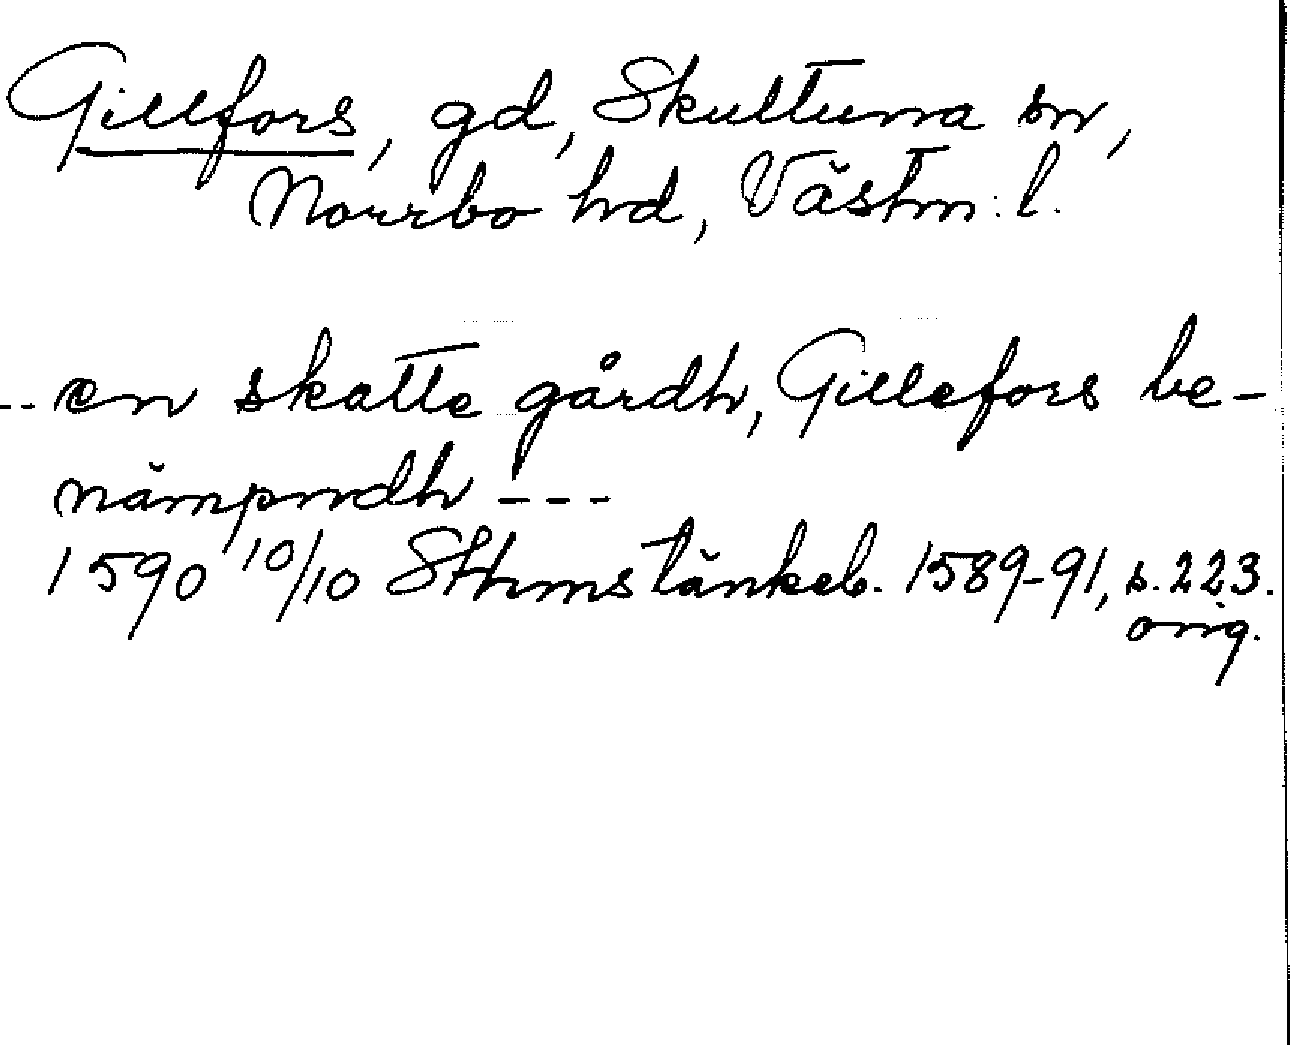 Gillfors, gd, Skultuna sn,
Norrbo hd, Västm. l.
-- en skatte gårdh, Gillefors be-
nämpndh ---
1590 10/10 Sthms tänkeb. 1589-91, s. 223.
orig.